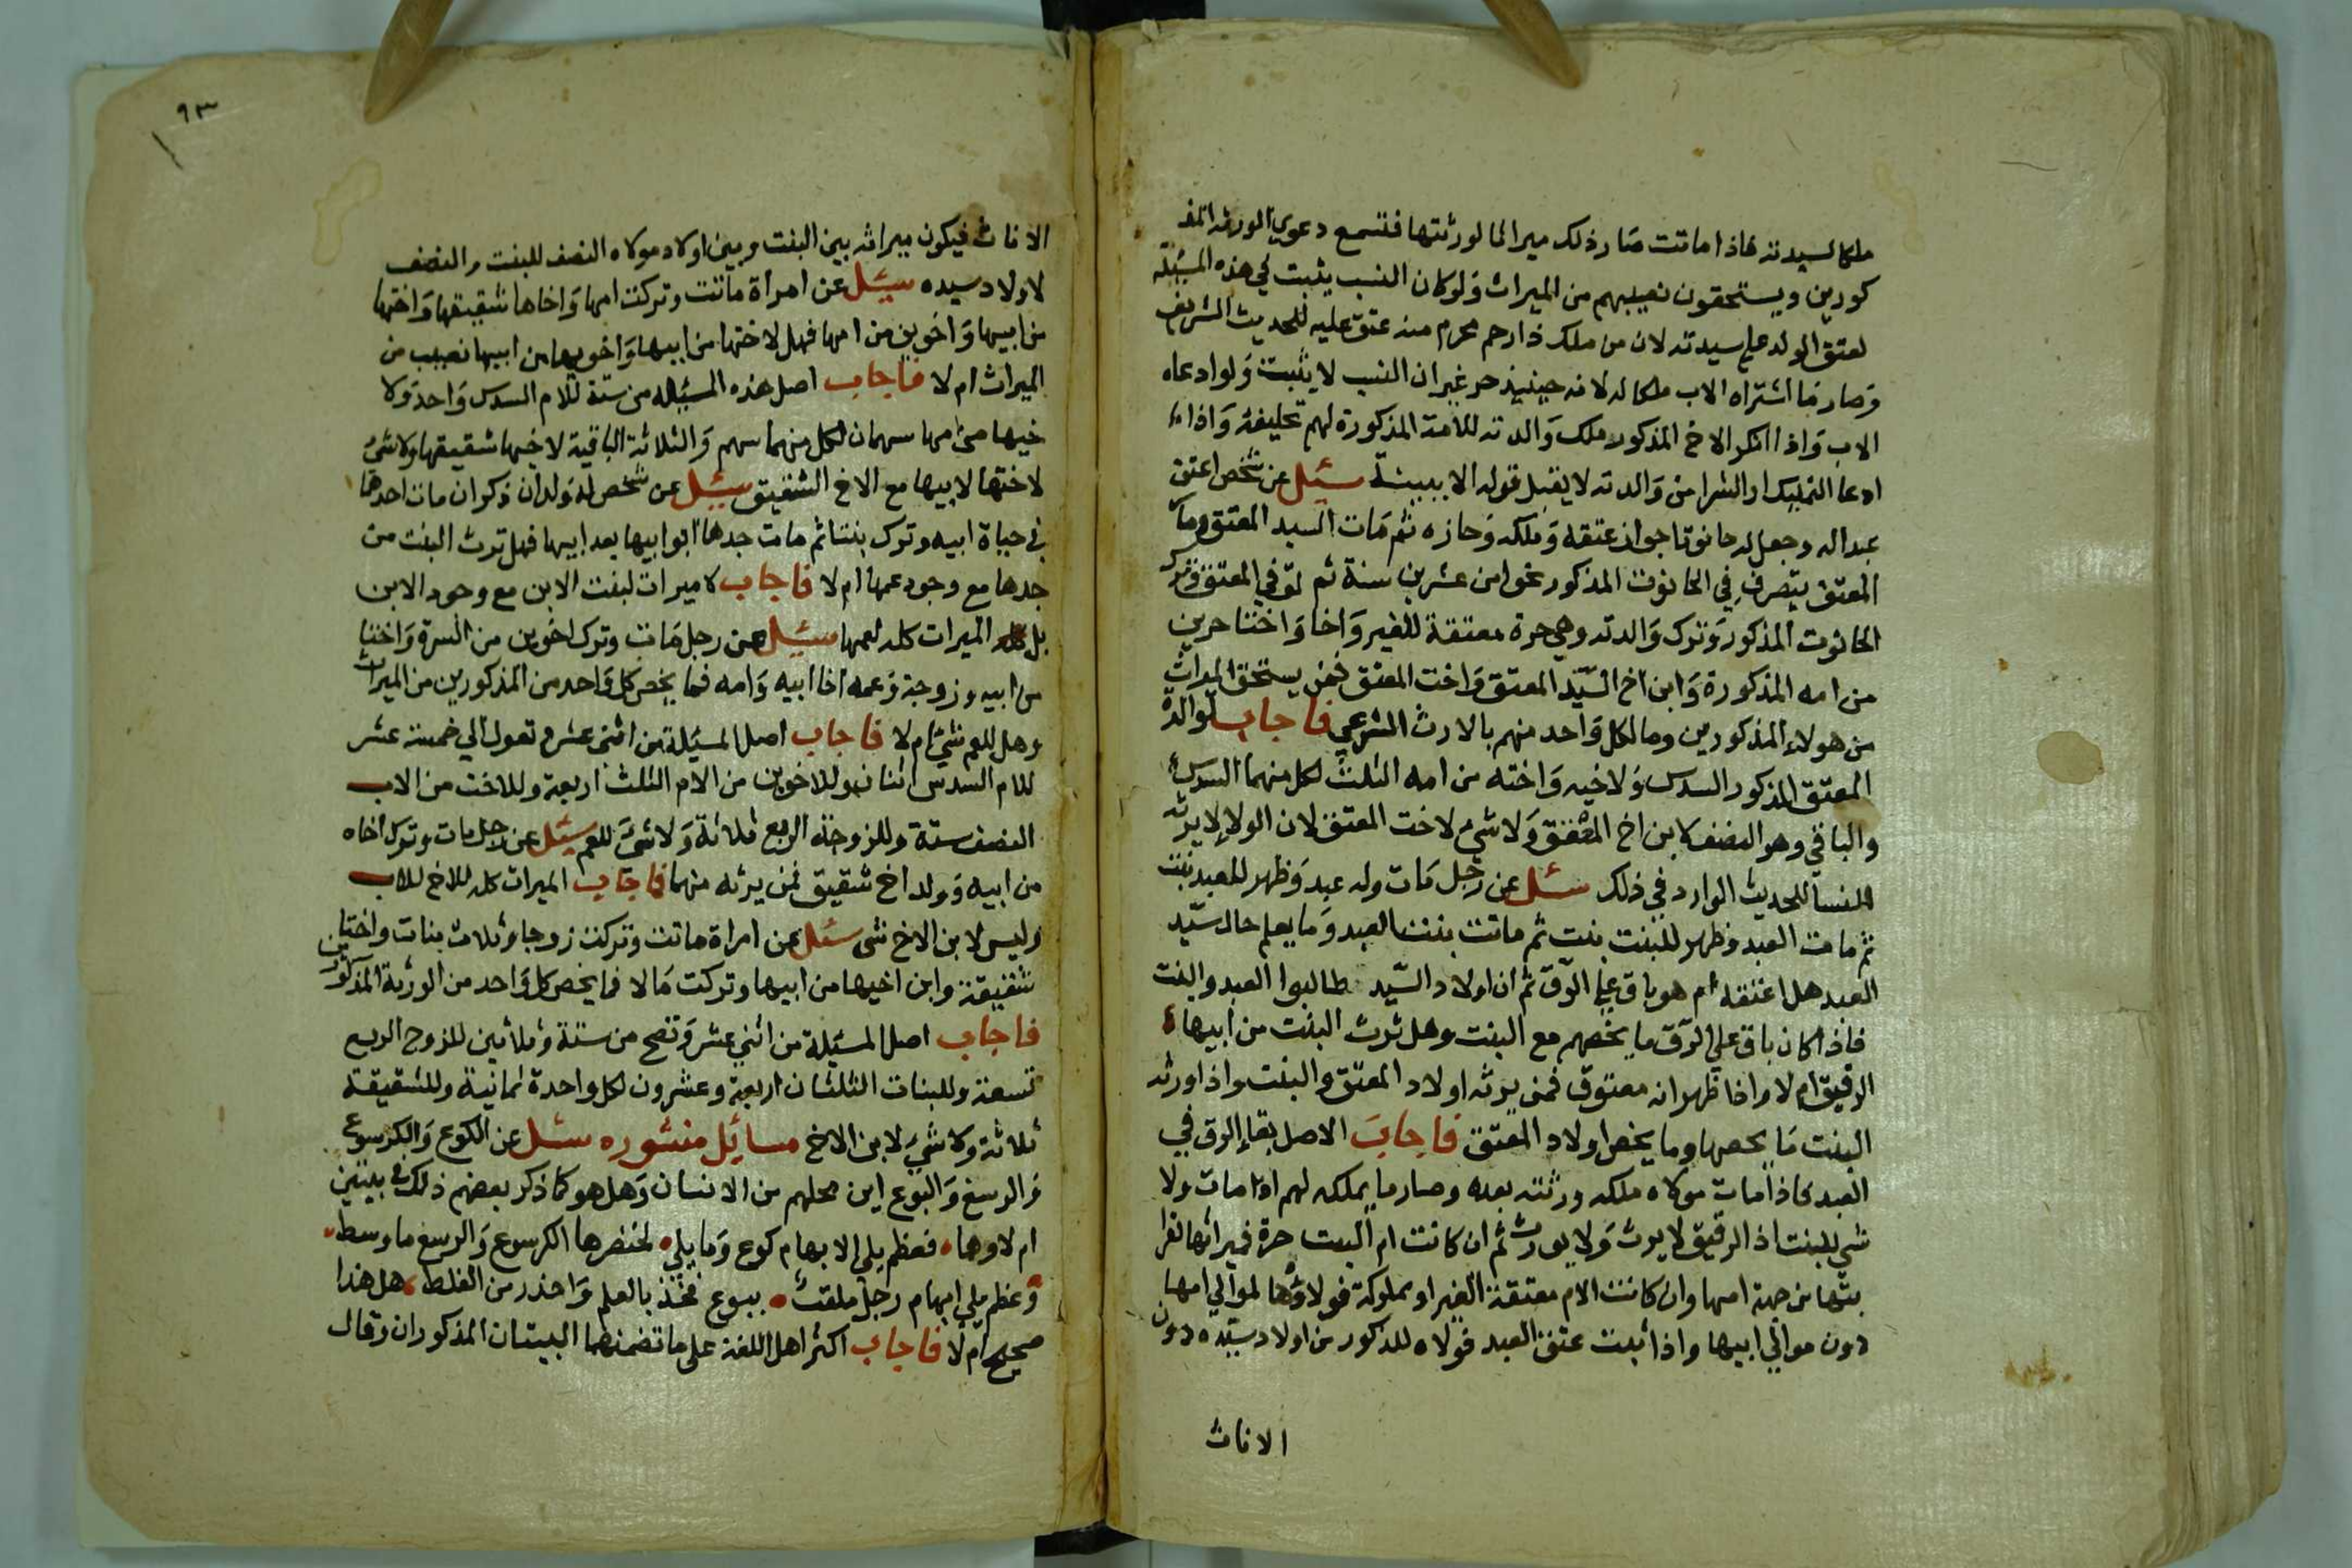 ملكا لسيدته فاذا ماتت صار ذلك ميراثا لورثتها فتسمع دعوي الورثة المذ
كورين ويستحقون نصيبهم من الميراث ولو كان النسب يثبت في هذه المسئلة
لعتق الولد علي سيدته لان من ملك ذا رحم محرم منه عتق عليه للحديث الشريف
وصار ما اشتراه الاب ملكا له لانه حينئذ حر غير ان النسب لا يثبت ولو ادعاه
الاب واذا انكر الاخ المذكور ملك والدته للامة المذكورة لهم تحليفه واذا
ادعا التمليك او الشرا من والدته لا يقبل قوله الا ببينة سئل عن شخص اعتق
عبدا له وجعل له حانوتا جواز عتقه وملكه وحازه ثم مات السيد المعتق وما
المعتق يتصرف في الحانوت المذكور نحوا من عشرين سنة ثم توفي المعتق وترك
الحانوت المذكور وترك والدته وهي حرة معتقة للغير واخا واختا حرين
من امه المذكورة وابن اخ السيد المعتق واخت المعتق فمن يستحق الميراث
من هولاء المذكورين وما لكل واحد منهم بالارث الشرعي فاجاب لوالدة
المعتق المذكور السدس ولاخيه واخته من امه الثلث لكل منهما السدس
والباقي وهو النصف لابن اخ المعتق ولا شيء لاخت المعتق لان الولا لا يرثه
النسا للحديث الوارد في ذلك سئل عن رجل مات وله عبد وظهر للعبد بنت
ثم مات العبد وظهر للبنت بنت ثم ماتت بنت العبد وما يعلم حال سيد
العبد هل اعتقه ام هو باق علي الرق ثم ان اولاد السيد طالبوا العبد والبنت
فاذا كان باق علي الرق ما يخصهم مع البنت وهل ترث البنت من ابيها
الرقيق ام لا واذا ظهر انه معتوق فمن يرثه اولاد المعتق والبنت واذا ورثه
البنت ما يخصها وما يخص اولاد المعتق فاجاب الاصل بقاء الرق في
العبد فاذا مات مولاه ملكه ورثته بعده وصار ما يملكه لهم اذا مات ولا
شي للبنت اذ الرقيق لا يرث ولا يورث ثم ان كانت ام البنت حرة فميراثها لقرا
بتها من جهة امها وان كانت الام معتقة الغير او مملوكة فولاؤها لموالي امها
دون موالي ابيها واذا ثبت عتق العبد فولاه للذكور من اولاد سيده دون
الاناث
٩٣
الاناث فيكون ميراثه بين البنت وبين اولاد مولاه النصف للبنت والنصف
لاولاد سيده سئل عن امراة ماتت وتركت امها واخاها شقيقها واختها
من ابيها واخوين من امها فهل لاختها من ابيها واخويها من ابيها نصيب من
الميراث ام لا فاجاب اصل هذه المسئلة من ستة للام السدس واحد ولا
خيها من امها سهمان لكل منهما سهم والثلاثة الباقية لاخيها شقيقها ولا شئ
لاختها لابيها مع الاخ الشقيق سئل عن شخص له ولدان ذكران مات احدهما
في حياة ابيه وترك بنتا ثم مات جدها ابو ابيها بعد ابيها فهل ترث البنت من
جدها مع وجود عمها ام لا فاجاب لا ميراث لبنت الابن مع وجود الابن
بل الميراث كله لعمها سئل عن رجل مات وترك اخوين من السرة واختا
من ابيه وزوجة وعمه اخا ابيه وامه فما يخص كل واحد من المذكورين من الميراث
وهل للعم شئ ام لا فاجاب اصل المسئلة من اثني عشر وتعول الي خمسة عشر
للام السدس اثنان وللاخوين من الام الثلث اربعة وللاخت من الاب
النصف ستة وللزوجة الربع ثلاثة ولا شئ للعم سئل عن رجل مات وترك اخاه
من ابيه وولد اخ شقيق فمن يرثه منهما فاجاب الميراث كله للاخ للاب
وليس لابن الاخ شي سئل عن امراة ماتت وتركت زوجا وثلاث بنات واختا
شقيقة وابن اخيها من ابيها وتركت مالا فما يخص كل واحد من الورثة المذكورين
فاجاب اصل المسئلة من اثني عشر وتصح من ستة وثلاثين للزوج الربع
تسعة وللبنات الثلثان اربعة وعشرون لكل واحدة ثمانية وللشقيقة
ثلاثة ولا شئ لابن الاخ مسائل منثوره سئل عن الكوع والكرسوع
والرسغ والبوع اين محلهم من الانسان وهل هو كما ذكر بعضهم ذلك في بيتين
ام لا وهما فعظم يلي الابهام كوع وما يلي لخنصرها الكرسوع والرسغ ما وسط
وعظم يلي ابهام رجل ملقب ببوع فخذ بالعلم واحذر من الغلط هل هذا
صحيح ام لا فاجاب اكثر اهل اللغة على ما تضمنهما البيتان المذكوران وقال